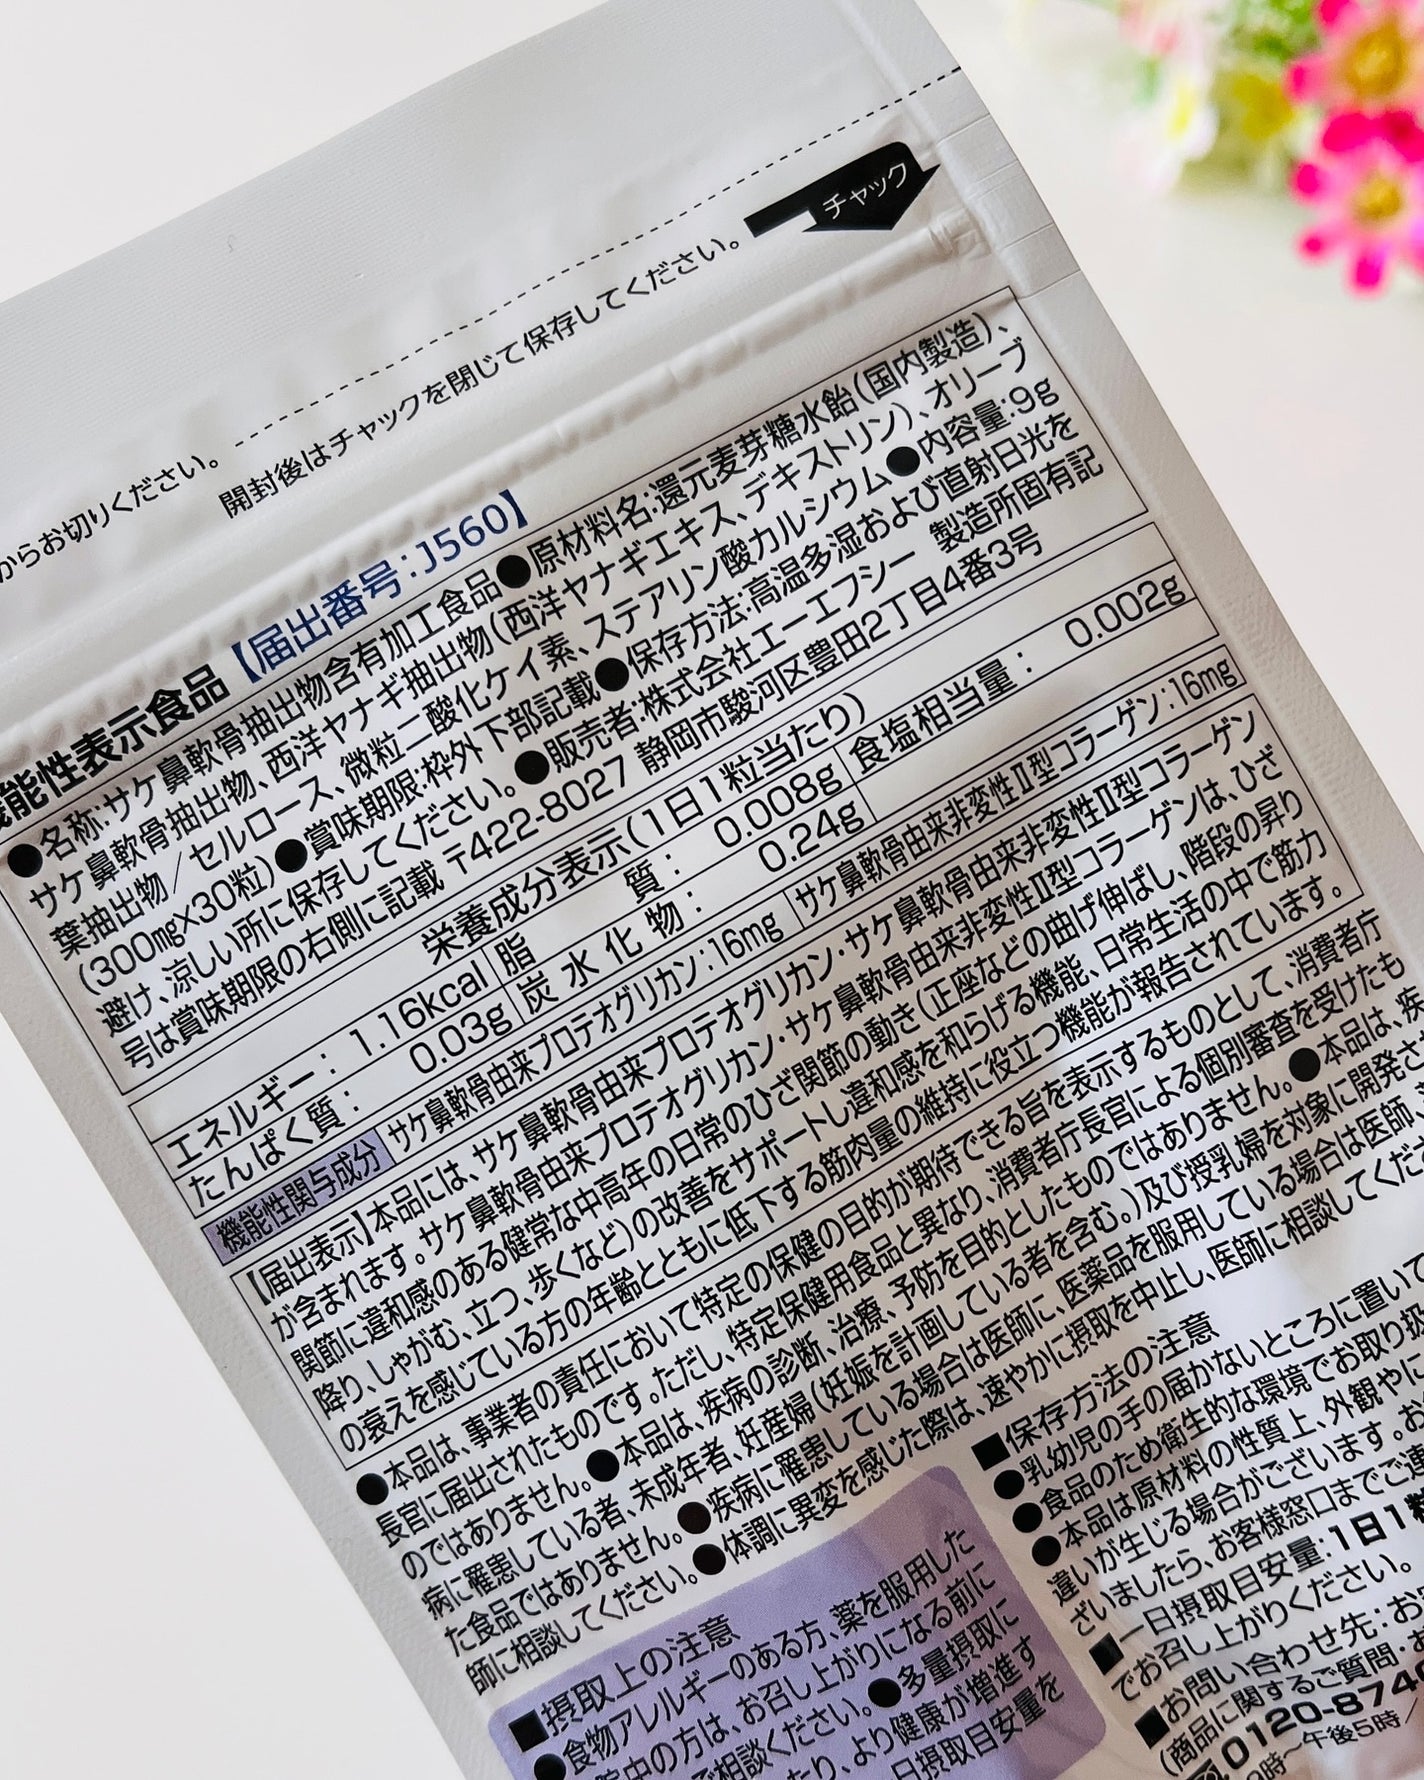 チャック
からお切りください。
開封後はチャックを閉じて保存してください。
能性表示食品【届出番号:J560】
●名称:サケ鼻軟骨抽出物含有加工食品●原材料名:還元麦芽糖水飴(国内製造)、
サケ鼻軟骨抽出物、西洋ヤナギ抽出物(西洋ヤナギエキス、デキストリン)、オリーブ
葉抽出物/セルロース、微粒二酸化ケイ素、ステアリン酸カルシウム●内容量:9g
(300mg×30粒)●賞味期限:枠外下部記載●保存方法:高温多湿および直射日光を
避け、涼しい所に保存してください。●販売者:株式会社エーエフシー 製造所固有記
号は賞味期限の右側に記載 〒422-8027 静岡市駿河区豊田2丁目4番3号
栄養成分表示(1日1粒当たり)
エネルギー: 1.16kcal 脂質: 0.008g 食塩相当量: 0.002g
たんぱく質: 0.03g 炭水化物: 0.24g
機能性関与成分 サケ鼻軟骨由来プロテオグリカン:16mg サケ鼻軟骨由来非変性Ⅱ型コラーゲン:16mg
【届出表示】本品には、サケ鼻軟骨由来プロテオグリカン・サケ鼻軟骨由来非変性Ⅱ型コラーゲン
が含まれます。サケ鼻軟骨由来プロテオグリカン・サケ鼻軟骨由来非変性Ⅱ型コラーゲンは、ひざ
関節に違和感のある健常な中高年の日常のひざ関節の動き(正座などの曲げ伸ばし、階段の昇り
降り、しゃがむ、立つ、歩くなど)の改善をサポートし違和感を和らげる機能、日常生活の中で筋力
の衰えを感じている方の年齢とともに低下する筋肉量の維持に役立つ機能が報告されています。
●本品は、事業者の責任において特定の保健の目的が期待できる旨を表示するものとして、消費者庁
長官に届出されたものです。ただし、特定保健用食品と異なり、消費者庁長官による個別審査を受けたも
のではありません。●本品は、疾病の診断、治療、予防を目的としたものではありません。●本品は、疾
病に罹患している者、未成年者、妊産婦(妊娠を計画している者を含む。)及び授乳婦を対象に開発さ
た食品ではありません。●疾病に罹患している場合は医師に、医薬品を服用している場合は医師、
師に相談してください。●体調に異変を感じた際は、速やかに摂取を中止し、医師に相談してくだ
■摂取上の注意
●食物アレルギーのある方、薬を服用した
院中の方は、お召し上がりになる前に
ご相談ください。●多量摂取に
たり、より健康が増進す
日摂取目安量を
■保存方法の注意
●乳幼児の手の届かないところに置いて
●食品のため衛生的な環境でお取り扱
●本品は原材料の性質上、外観やに
違いが生じる場合がございます。お
ざいましたら、お客様窓口までご連
■一日摂取目安量:1日1粒
でお召し上がりください。
■お問い合わせ先:お
(商品に関するご質問・お
0120-874
時〜午後5時/